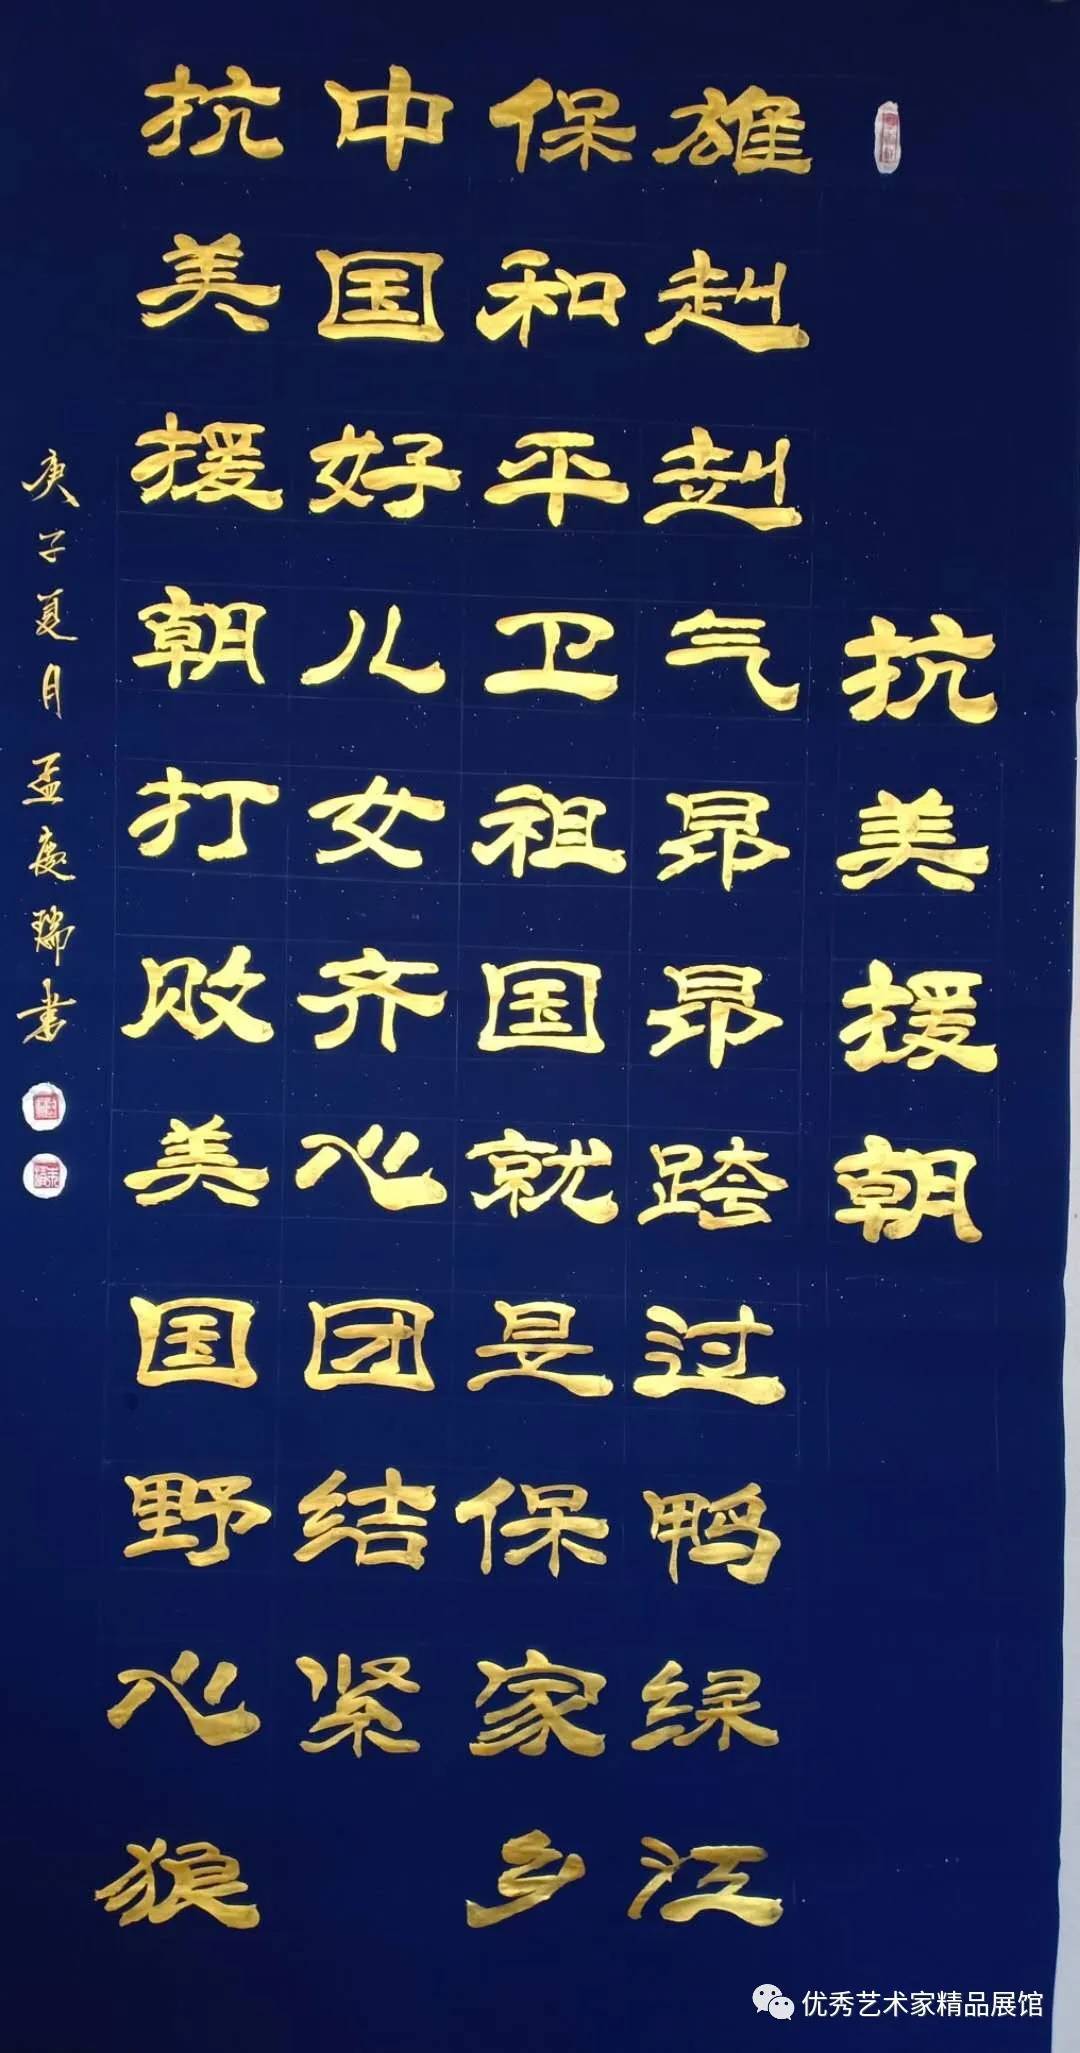 抗美援朝
雄赳赳气昂昂跨过鸭绿江
保和平卫祖国就是保家乡
中国好儿女齐心团结紧
抗美援朝打败美国野心狼
庚子夏月孟庆瑞书
优秀艺术家精品展馆